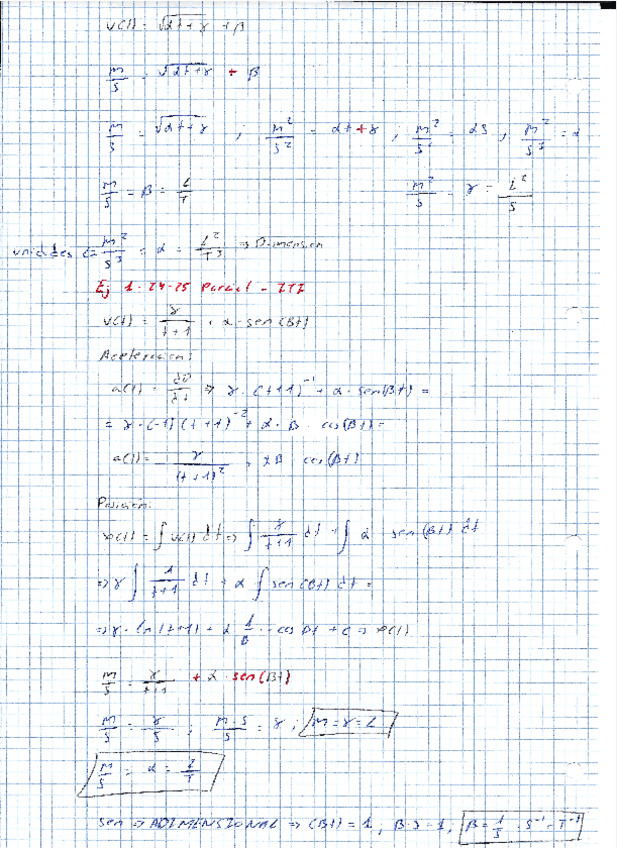 v(t) = √αt+γ + β
m/s = √αt+γ + β
m/s = √αt+γ ; m²/s² = αt+γ ; m²/s² = αs ; m²/s³ = α
m/s = β = L/T m²/s = γ = L²/s
unidades <= m²/s³ = α = L²/T³ => Dimension
Ej 1. 24-25 Parcial - III
v(t) = γ/t+1 + α·sen(βt)
Aceleracion:
a(t) = dv/dt => γ·(t+1)⁻¹ + α·sen(βt) =
= γ·(-1)(t+1)⁻² + α·β·cos(βt) =
a(t) = γ/(t+1)² + αβ cos(βt)
Posicion:
x(t) = ∫ v(t) dt => ∫ γ/t+1 dt + ∫ α sen(βt) dt
=> γ ∫ 1/t+1 dt + α ∫ sen(βt) dt =
=> γ·ln|t+1| + α 1/β · -cos βt + C => x(t)
m/s = γ/t+1 + α·sen(βt)
m/s = γ/s ; m·s/s = γ ; m = γ = L
m/s = α = L/T
sen => ADIMENSIONAL => (βt) = 1 ; β·s = 1, β = 1/s = s⁻¹ = T⁻¹